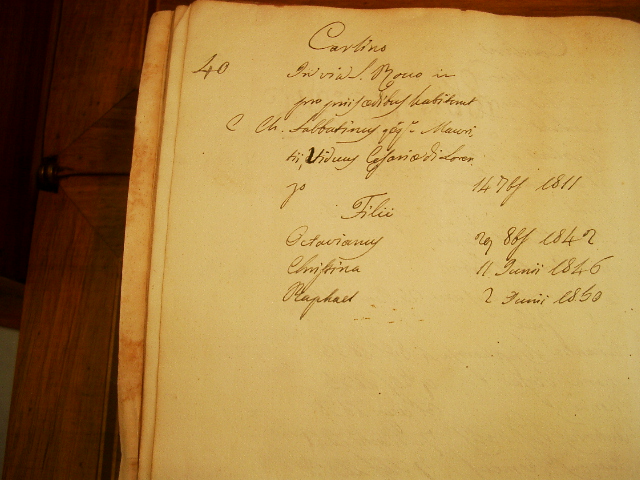 Carlino
40 In via S. Roco in
propriis ædibus habitant
C Ch. Sabbatinus q. Mauri,
tii, Viduus Cesariæ di Loren
zo 14 7bs 1811
Filii
Octavianus 29 8bs 1842
Christina 11 Junii 1846
Raphael 2 Junii 1850